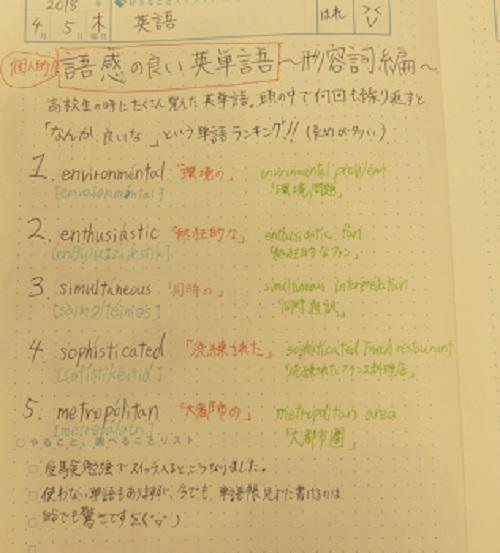 2018 年
4月 5日 木 英語 はれ
個人的 語感の良い英単語 〜形容詞編〜
高校生の時にたくさん覚えた英単語。頭の中で何回も繰り返すと
「なんか、良いな」という単語ランキング!!
1. environméntal 「環境の」 environmental problem
[envàirənméntəl] 「環境問題」
2. enthusiástic 「熱狂的な」 enthusiastic fan
「熱狂的なファン」
3. simultáneous 「同時の」 simultaneous interpretation
「同時通訳」
4. sophísticated 「洗練された」 sophisticated French restaurant
「洗練されたフランス料理店」
5. metropólitan 「大都市の」 metropolitan area
「大都市圏」
やること、調べることリスト
受験勉強でスイッチ入るとこうなりました。
使わない単語もありますが、今でも、単語帳見れた書けるのは